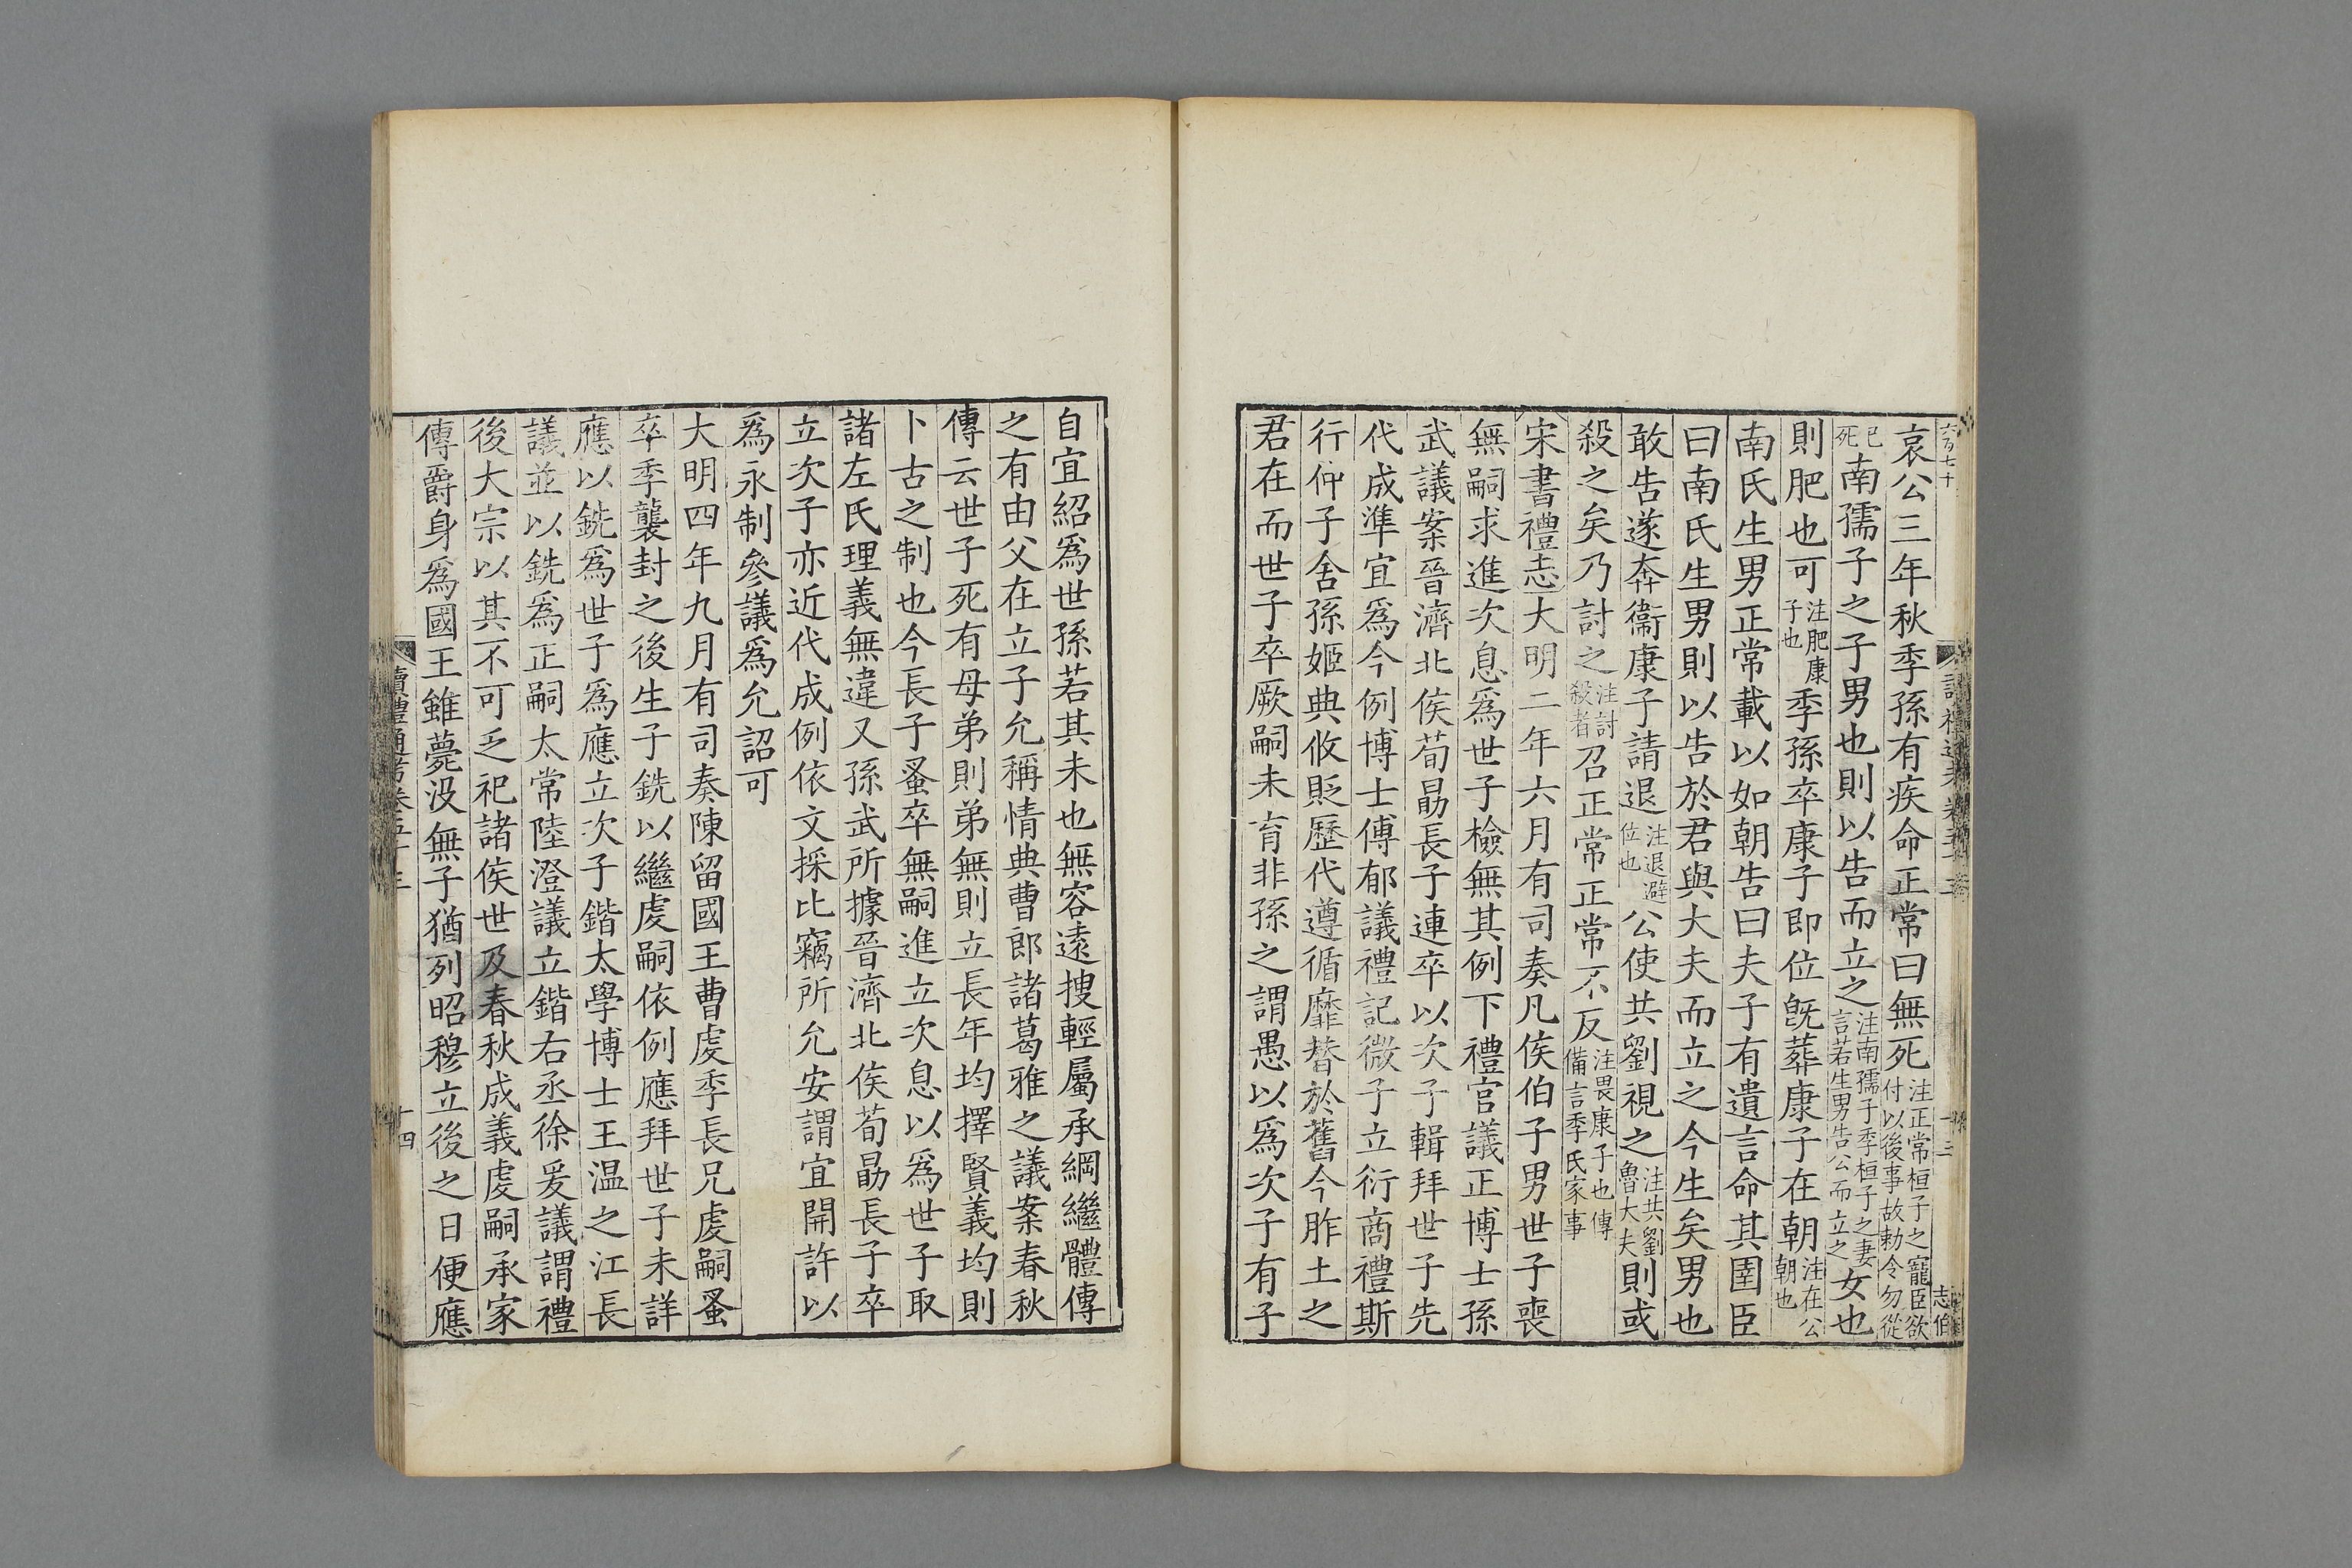 哀公三年秋季孫有疾命正常曰無死注正常桓子之寵臣欲付以後事故勅令勿從
己死南孺子之子男也則以告而立之注南孺子季桓子之妻言若生男告公而立之女也
則肥也可注肥康子也季孫卒康子即位旣葬康子在朝注在公朝也
南氏生男正常載以如朝告曰夫子有遺言命其圉臣
曰南氏生男則以告於君與大夫而立之今生矣男也
敢告遂奔衞康子請退注退避位也公使共劉視之注共劉魯大夫則或
殺之矣乃討之注討殺者召正常正常不反注畏康子也傳備言季氏家事
宋書禮志大明二年六月有司奏凡侯伯子男世子喪
無嗣求進次息爲世子檢無其例下禮官議正博士孫
武議案晉濟北侯荀勗長子連卒以次子輯拜世子先
代成準宜爲今例博士傅郁議禮記微子立衍商禮斯
行仲子舍孫姬典攸貶歷代遵循靡替於舊今胙土之
君在而世子卒厥嗣未育非孫之謂愚以爲次子有子
自宜紹爲世孫若其未也無容遠搜輕屬承綱繼體傳
之有由父在立子允稱情典曹郎諸葛雅之議案春秋
傳云世子死有母弟則弟無則立長年均擇賢義均則
卜古之制也今長子蚤卒無嗣進立次息以爲世子取
諸左氏理義無違又孫武所據晉濟北侯荀勗長子卒
立次子亦近代成例依文採比竊所允安謂宜開許以
爲永制參議爲允詔可
大明四年九月有司奏陳留國王曹虔季長兄虔嗣蚤
卒季襲封之後生子銑以繼虔嗣依例應拜世子未詳
應以銑爲世子爲應立次子鍇太學博士王温之江長
議並以銑爲正嗣太常陸澄議立鍇右丞徐爰議謂禮
後大宗以其不可乏祀諸侯世及春秋成義虔嗣承家
傳爵身爲國王雖薨没無子猶列昭穆立後之日便應
讀禮通考卷五十三
十四